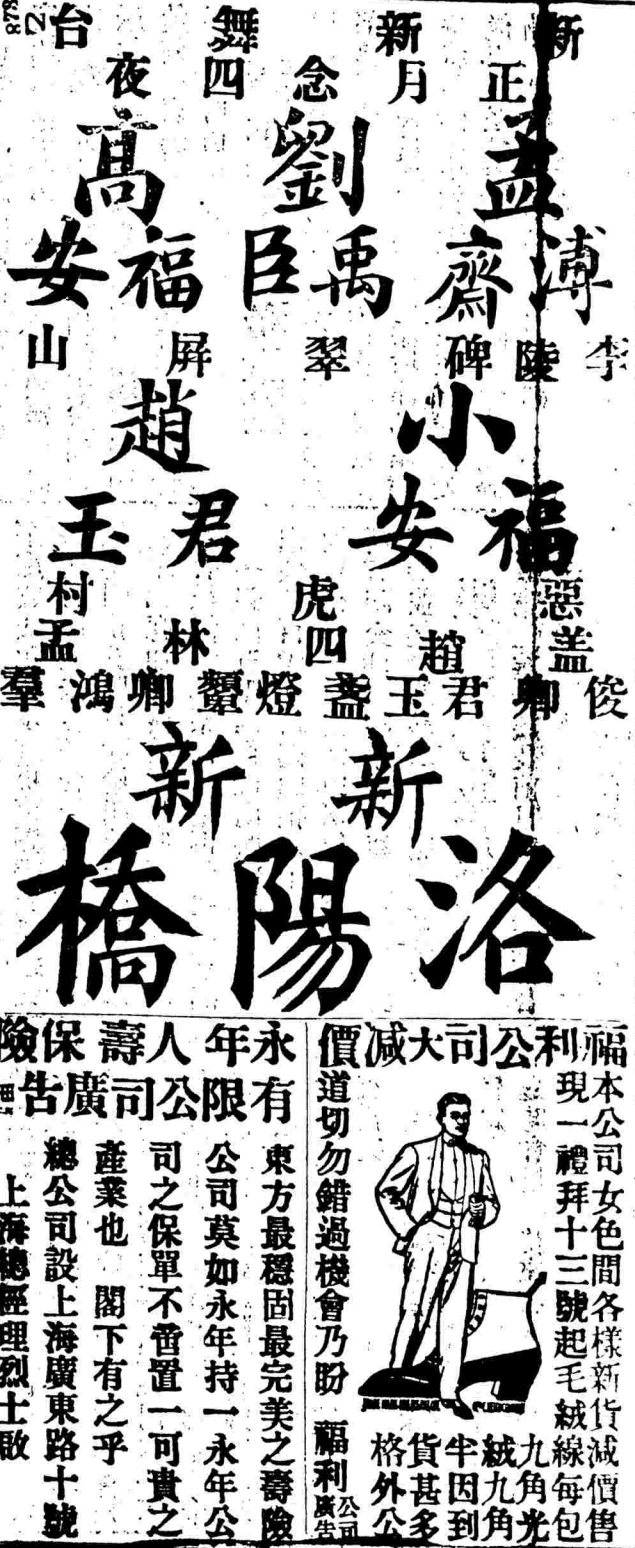 新新舞台
正月念四夜
孟溥齋
劉禹臣
高福安
李陵碑
翠屏山
小福安
趙君玉
惡虎村
盖俊卿
趙君玉
四盞燈
林顰卿
孟鴻羣
新新
洛陽橋
福利公司大減價
本公司女色間各樣新貨減價售
現一禮拜十三號起毛絨線每包
九角光
絨九角
牛因到
貨甚多
格外公
道切勿錯過機會乃盼 福利公司廣告
永年人壽保險
有限公司廣告
東方最穩固最完美之壽險
公司莫如永年持一永年公
司之保單不啻置一可貴之
產業也 閣下有之乎
總公司設上海廣東路十號
上海總經理烈士啟